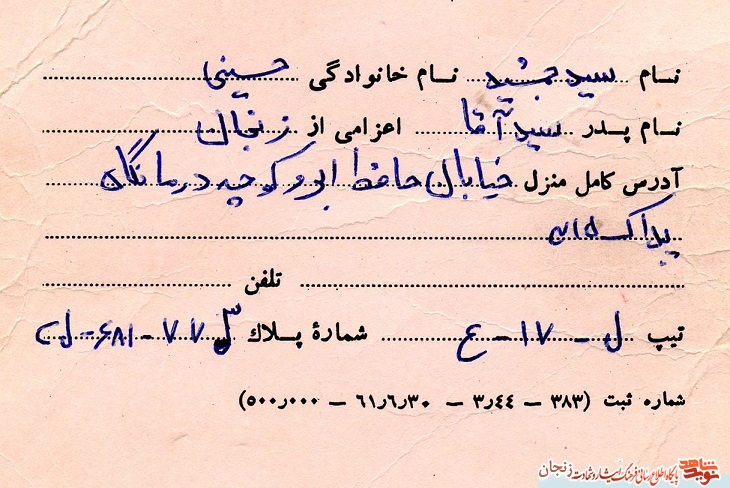 نام سید جمشید نام خانوادگی حسینی
نام پدر سید آقا اعزامی از زنجان
آدرس کامل منزل خیابان حافظ ابرو کوچه درمانگاه
پلاک
تلفن
تیپ ل - ۱۷ - ع شمارهٔ پلاك
شماره ثبت (۳۸۳ – ۳٫۴۴ – ۶۱٫۶٫۳۰ – ۵۰۰٫۰۰۰)
نوید شاهد پایگاه اطلاع رسانی فرهنگ ایثار و شهادت زنجان